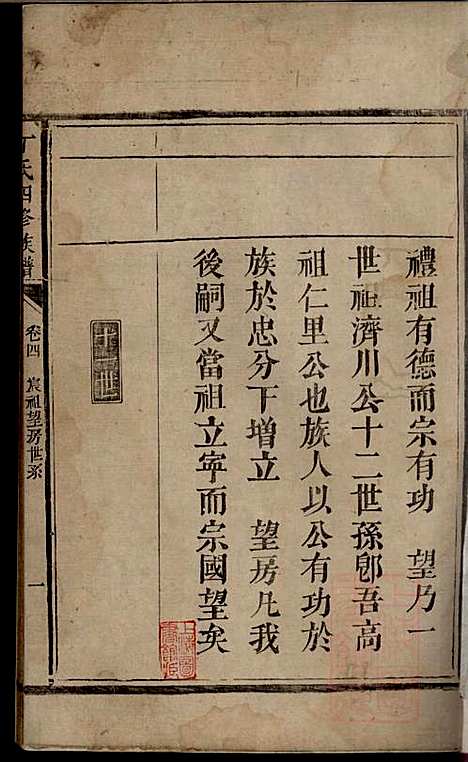 禮祖有德而宗有功　望乃一
世祖濟川公十二世孫卽吾高
祖仁里公也族人以公有功於
族於忠分下增立　望房凡我
後嗣又當祖立寧而宗國望矣
丁氏四修族譜
卷四　宸祖望房世系　一
上海圖書館藏